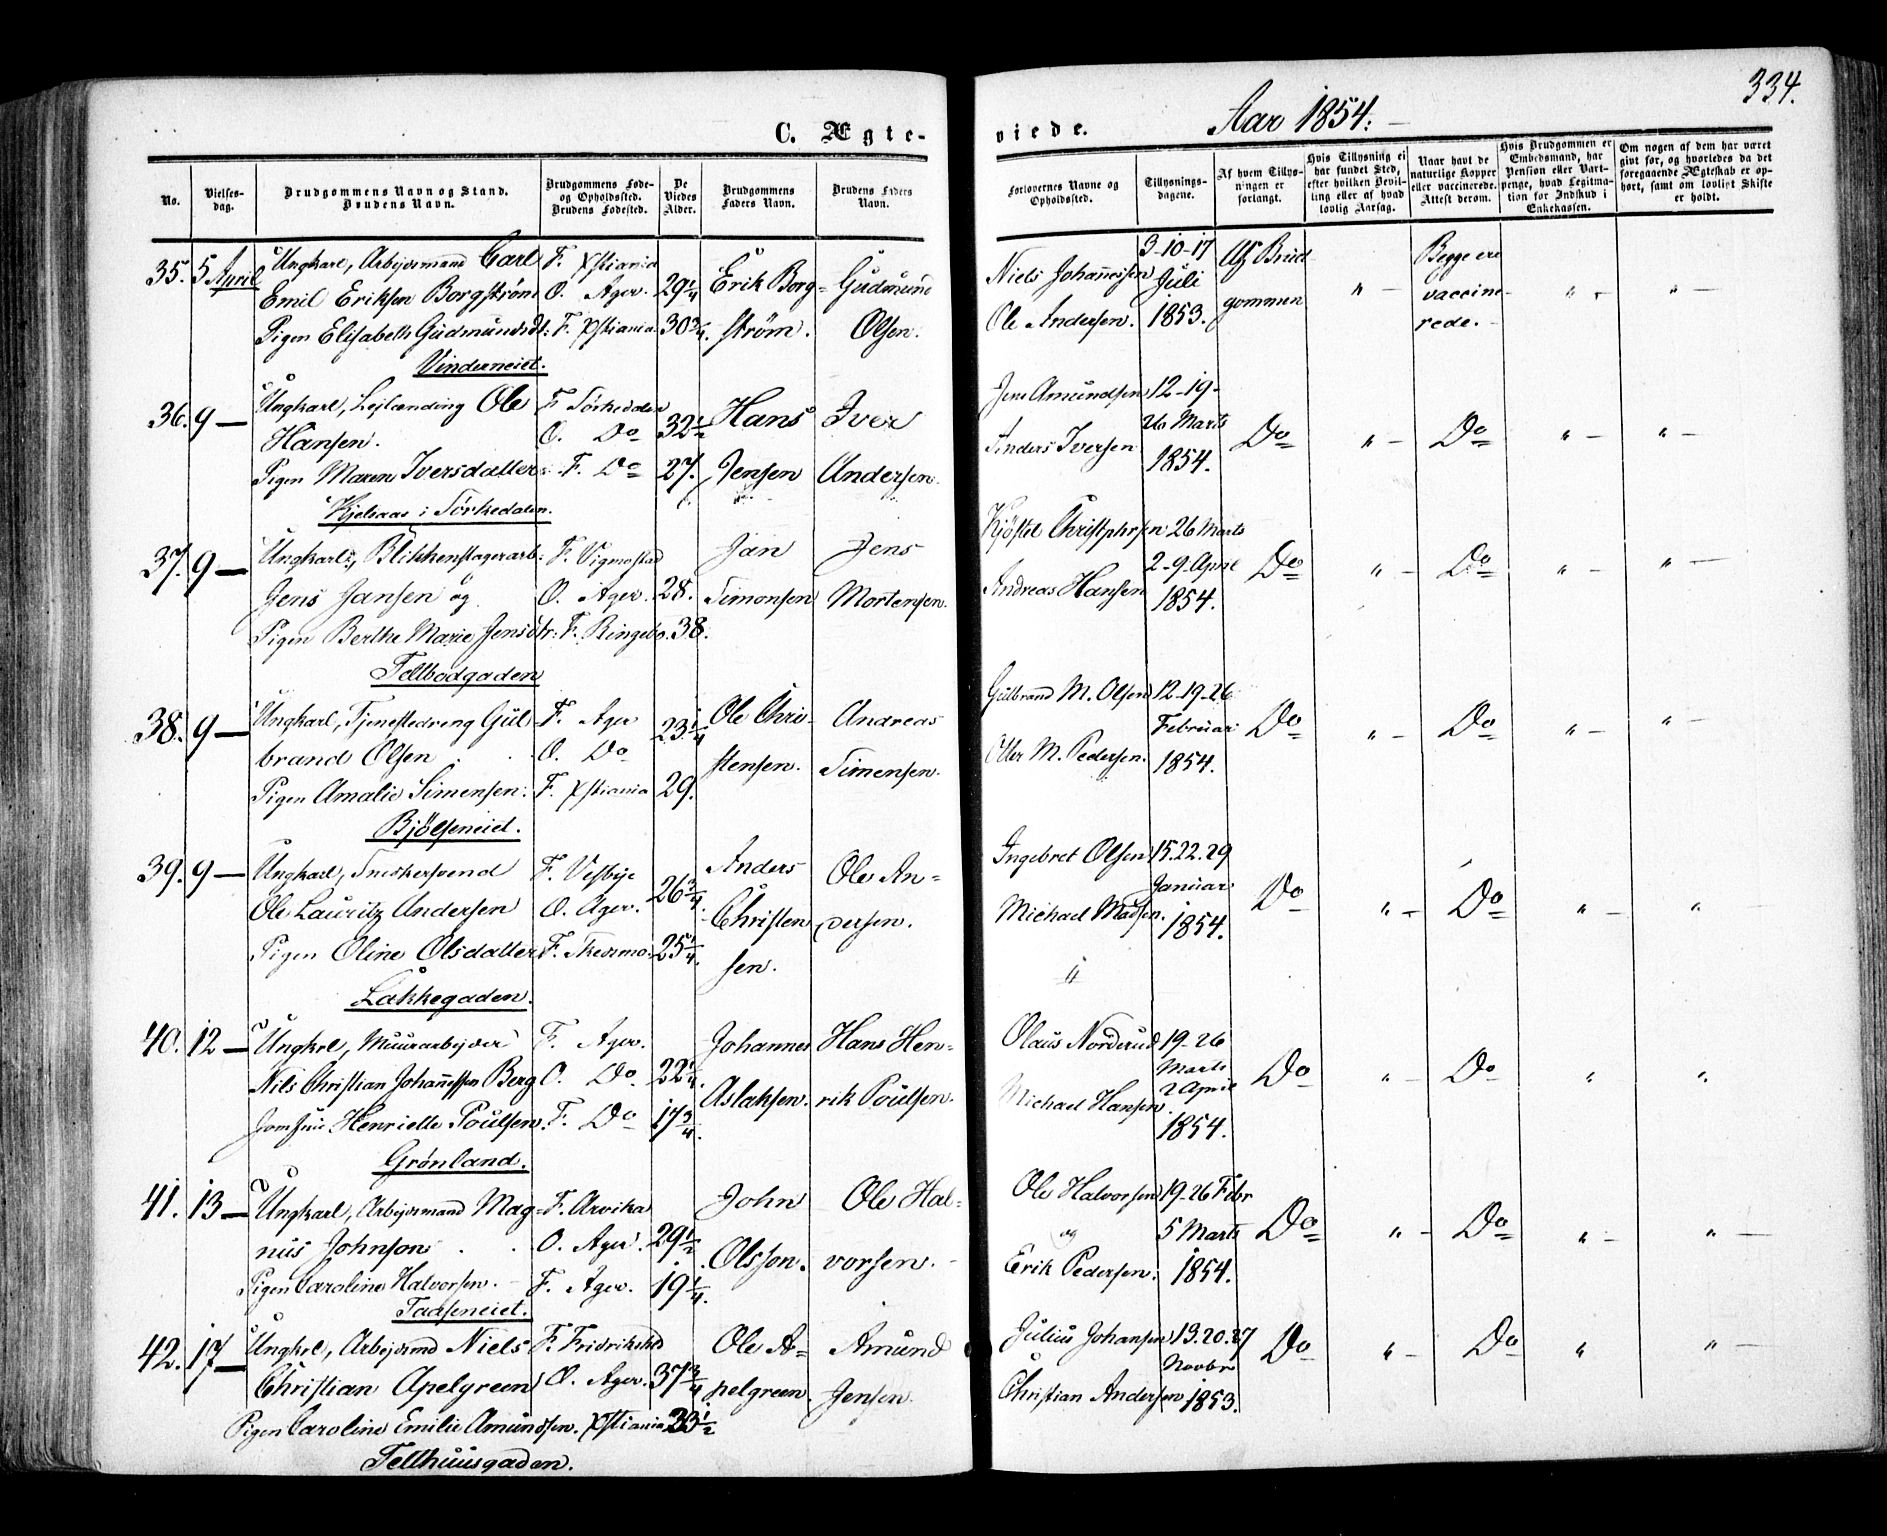 334.
C. Ægte-
viede.
Aar 1854.
No.
Vielses-
dag.
Brudgommens Navn og Stand.
Brudens Navn.
Brudgommens Føde-
og Opholdssted.
Brudens Fødested.
De
Viedes
Alder.
Brudgommens
Faders Navn.
Brudens Faders
Navn.
Forlovernes Navne og
Opholdssted.
Tillysnings-
dagene.
Af hvem Tillys-
ningen er
forlangt.
Hvis Tillysning ei
har fundet Sted,
efter hvilken Bevil-
ling eller af hvad
lovlig Aarsag.
Naar havt de
naturlige Kopper
eller vaccinerede.
Attest derom.
Hvis Brudgommen er
Embedsmand, har
Pension eller Vart-
penge, hvad Legitima-
tion for Indskud i
Enkekassen.
Om nogen af dem har været
givt før, og hvorledes da det
foregaaende Ægteskab er op-
hørt, samt om lovligt Skifte
er holdt.
35. 5 April Ungkarl, Arbejdsmand Carl F. Xstiania 29 1/4 Erik Borg- Gudmund Niels Johannessen 3-10-17 Af Brud " — Begge ere " - " —
Emil Eriksen Borgstrøm O. Ager. strøm. Olsen. Ole Andersen. Juli gommen vaccine-
Pigen Elisabeth Gudmundsdt: F. Xstiania. 30 3/4. 1853. rede. -
Vinderneiet.
36. 9 — Ungkarl, Lejlænding Ole F. Sörkedalen 32 1/2 Hans Iver Jens Amundsen 12-19- Do " — Do " — " —
Hansen. O. Do Jensen Andersen. Anders Iversen 26 Marts
Pigen Maren Iversdatter: F. Do 27. 1854.
Kjelsaas i Sörkedalen.
37. 9 — Ungkarl, Blikkenslagerarb: F. Vigmostad Jan Jens Kjöstel Christphrsen 26 Marts Do " — Do " — " —
Jens Jansen og O. Ager. 28. Simonsen Mortensen. Andreas Hansen 2-9-April
Pigen Berthe Marie Jensdtr: F. Ringebo. 38. 1854.
Toldbodgaden
38. 9 — Ungkarl, Tjenestedreng Gul- F. Ager 23 1/4 Ole Chri- Andreas Gulbrand M. Olsen 12-19-26 Do " — Do " — " —
brand Olsen. O. Do stensen. Simensen. M. Pedersen. Februar
Pigen Amalie Simensen. F. Xstiania 29. 1854.
Bjölseneiet.
39. 9 — Ungkarl, Snedkersvend F. Vestbye 26 3/4. Anders Ole An- Ingebret Olsen 15.22.29 Do " — Do " — "
Ole Lauritz Andersen O. Ager. Christen- dersen. Michael Madsen. Januar
Pigen Oline Olsdatter F. Skedsmo. 25 1/4. sen. 1854.
Lakkegaden.
40. 12 — Ungkrl, Muurarbejder F. Ager. Johannes Hans Hen- Olaus Norderud 19-26 Do " — Do " "
Nils Christian Johannessen Berg O. Do. 22 1/4. Aslaksen. rik Poulsen. Michael Hansen. Marts
2 April
Jomfrue Henriette Poulsen. F. Do 17 3/4. 1854.
Grönland.
41. 13 — Ungkarl, Arbejdsmand Mag- F. Arvika John Ole Hal- Ole Halvorsen 19-26 Febr Do " — Do " — " —
nus Johnson. O. Ager. 29 1/2 Olsson. vorsen. og 5 Marts
Pigen Caroline Halvorsen. F. Ager. 19 1/4. Erik Pedersen. 1854.
Taaseneiet.
42. 17 — Ungkrl, Arbejdsmd Niels F. Fridrikshld Ole A- Amund Julius Johansen 13.20.27 Do " — Do " " —
Christian Apelgreen O. Ager. 37 3/4 pelgreen. Jensen. Christian Andersen Novbr
1853.
Pigen Caroline Emilie Amundsen. Xstiania 23 1/2
Toldhuusgaden.